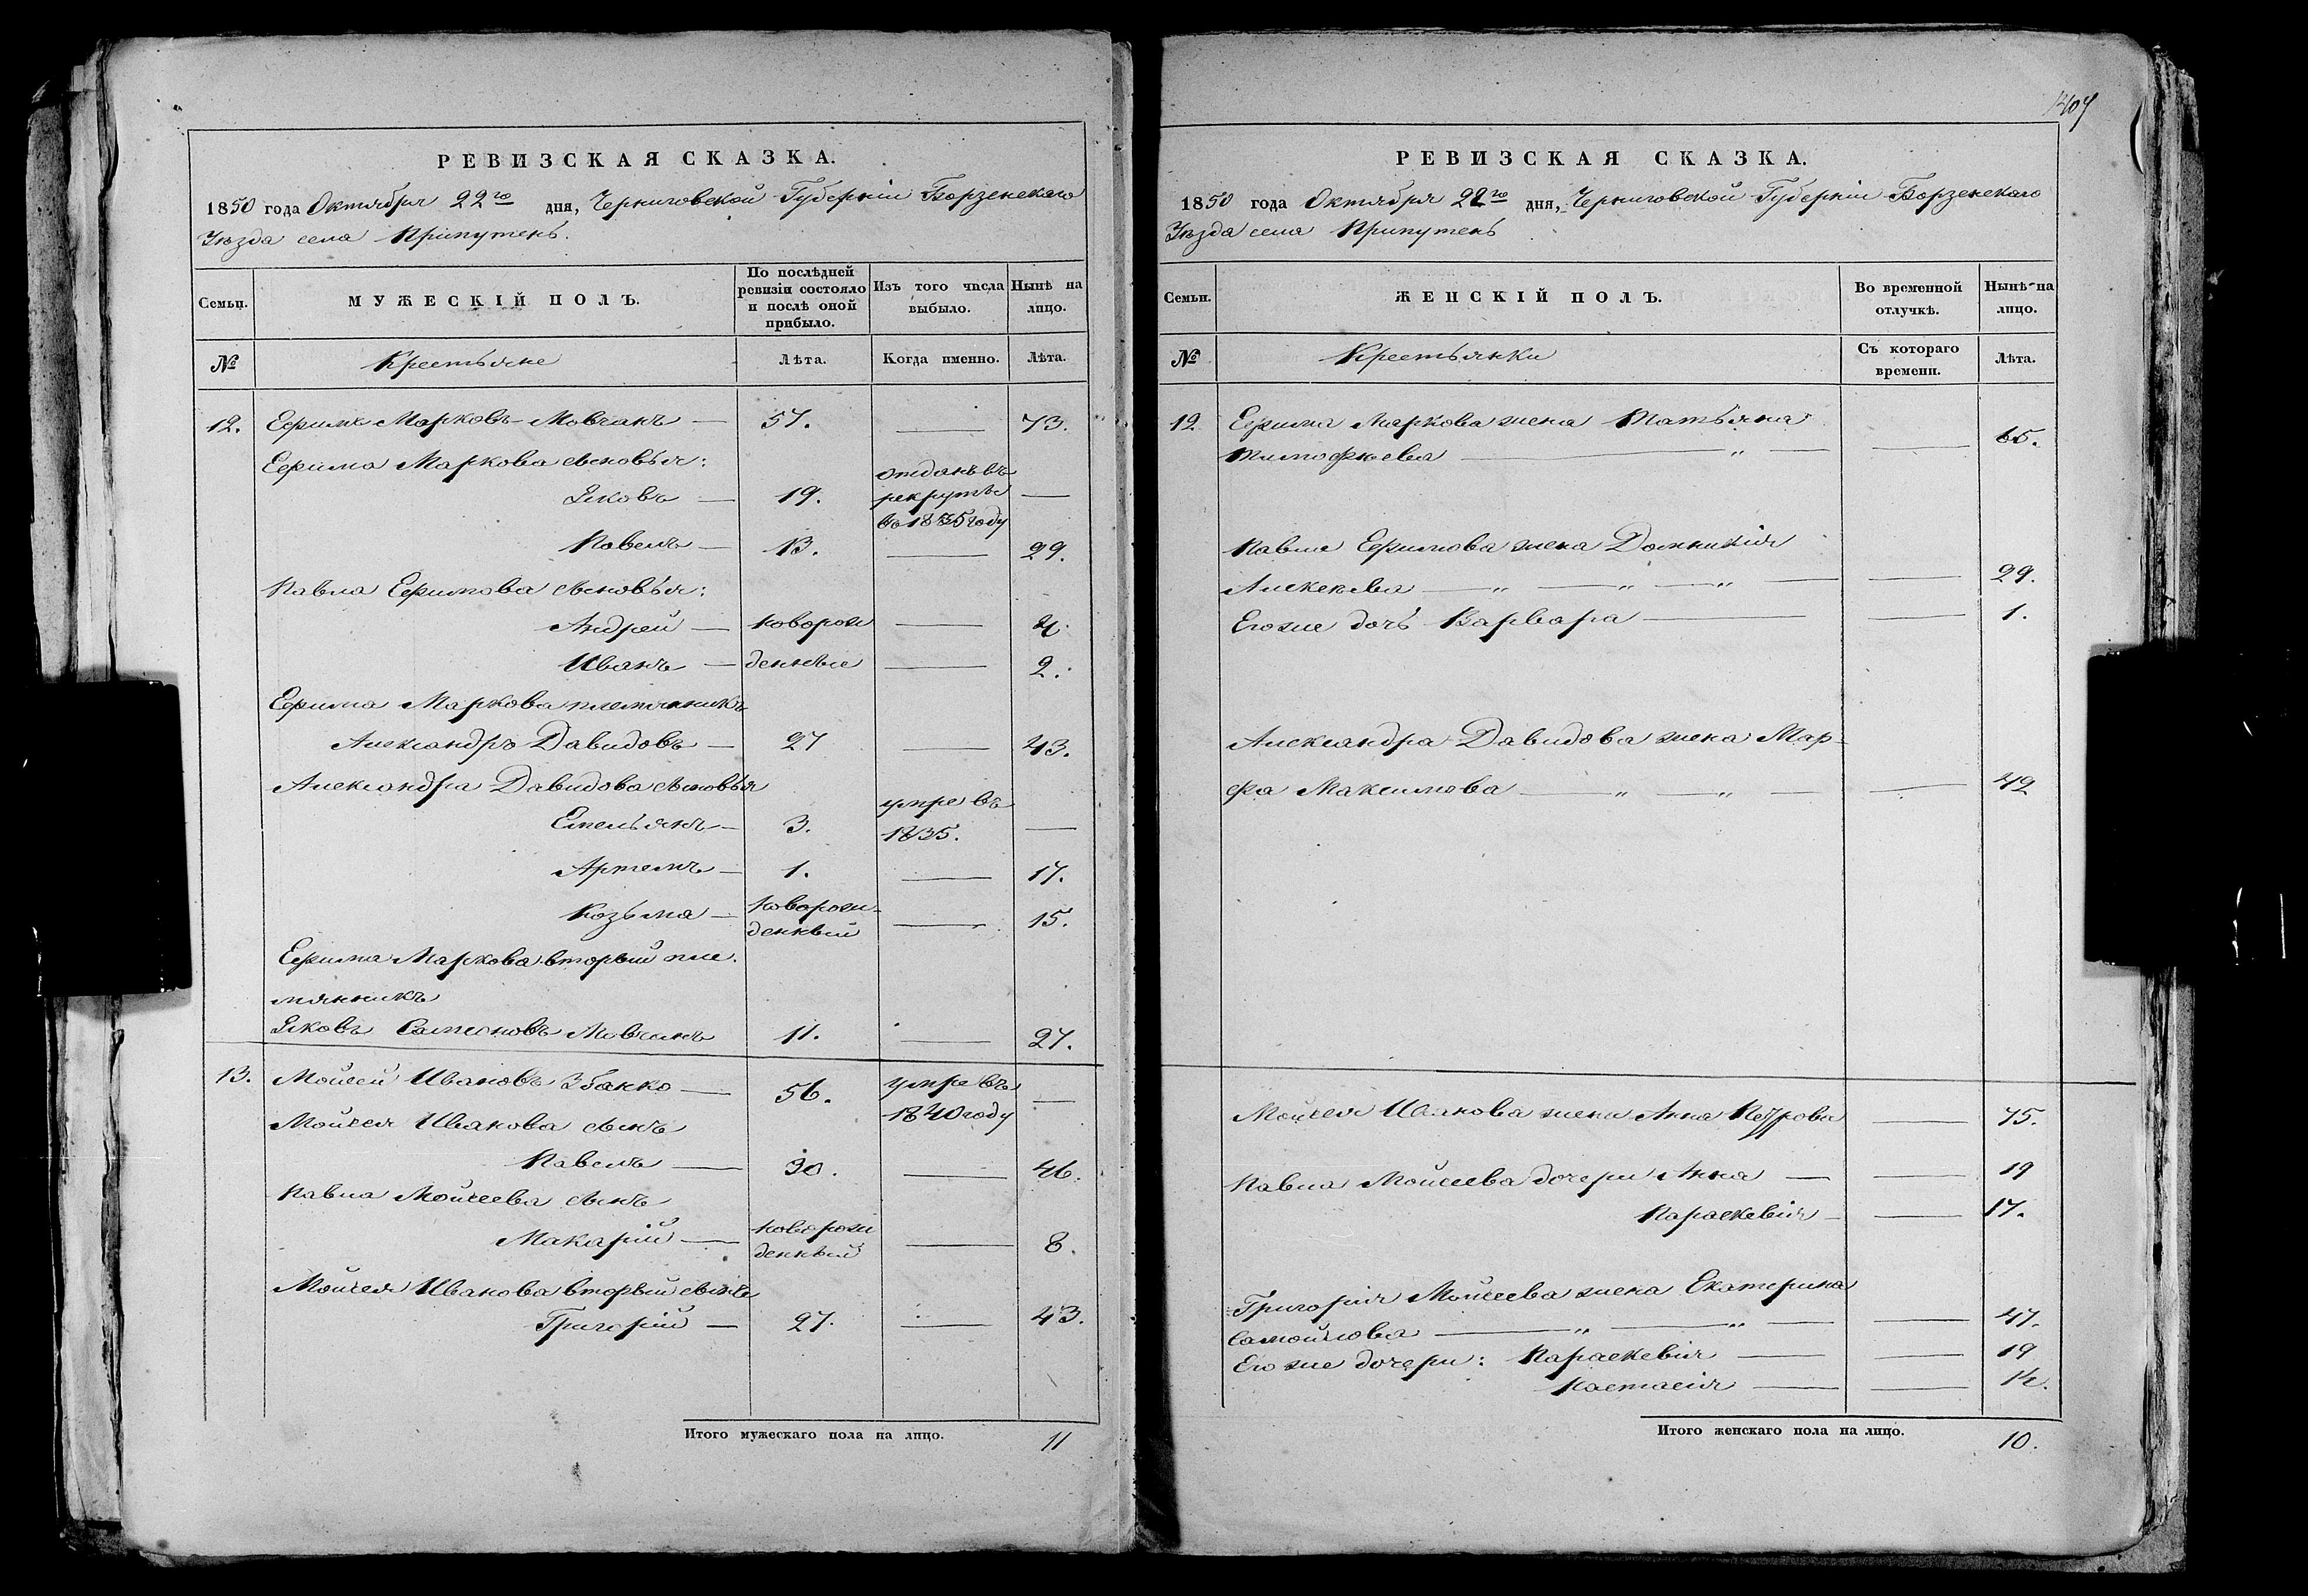 РЕВИЗСКАЯ СКАЗКА.
1850 года Октября 22го дня, Черниговской Губерніи Борзенскаго
Уѣзда села Припутень.
Семьи.
МУЖЕСКІЙ ПОЛЪ.
По послѣдней ревизіи состояло и послѣ оной прибыло.
Изъ того числа выбыло.
Нынѣ на лицо.
№
Крестьяне
Лѣта.
Когда именно.
Лѣта.
12. Ефимъ Марковъ Мовчанъ — 57. — 73.
Ефима Маркова сыновья:
Яковъ — 19. отданъ въ рекруты во 1835 году —
Павелъ — 13. — 29.
Павла Ефимова сыновья:
Андрей — новорож — 4.
Иванъ — денные — 2.
Ефима Маркова племянникъ
Александръ Давидовъ — 27 — 43.
Александра Давидова сыновья
Емельянъ — 3. умре въ 1835. —
Артемъ — 1. — 17.
Козьма — новорож-денный — 15.
Ефима Маркова вторый пле-
мянникъ
Яковъ Самсоновъ Мовчанъ 11. — 27.
13. Мойсей Ивановъ Збанко — 56. умре въ 1840 году —
Мойсея Иванова сынъ
Павелъ — 30. — 46.
Павла Мойсеева сынъ
Макарій — новорож денный — 8.
Мойсея Иванова вторый сынъ
Григорій — 27. — 43.
Итого мужескаго пола на лицо. 11
1407
РЕВИЗСКАЯ СКАЗКА.
1850 года Октября 22го дня, Черниговской Губерніи Борзенскаго
Уѣзда села Припутень
Семьи.
ЖЕНСКІЙ ПОЛЪ.
Во временной отлучкѣ.
Нынѣ на лицо.
№
Крестьянки
Съ котораго времени.
Лѣта.
12 Ефима Маркова жена Татьяна
Тимофѣева — " — 65.
Павла Ефимова жена Домникія
Алексѣева — " — " — " — 29.
Его же дочь Варвара — — 1.
Александра Давидова жена Мар-
фа Максимова — " — " — — 42
Мойсея Иванова жена Анна Петрова — 75.
Павла Мойсеева дочери Анна — — 19
Параскевія — — 17.
Григорія Мойсеева жена Екатерина
Самойлова — " — " — — 47.
Его же дочери: Параскевія — — 19
Настасія — — 14.
Итого женскаго пола на лицо. 10.